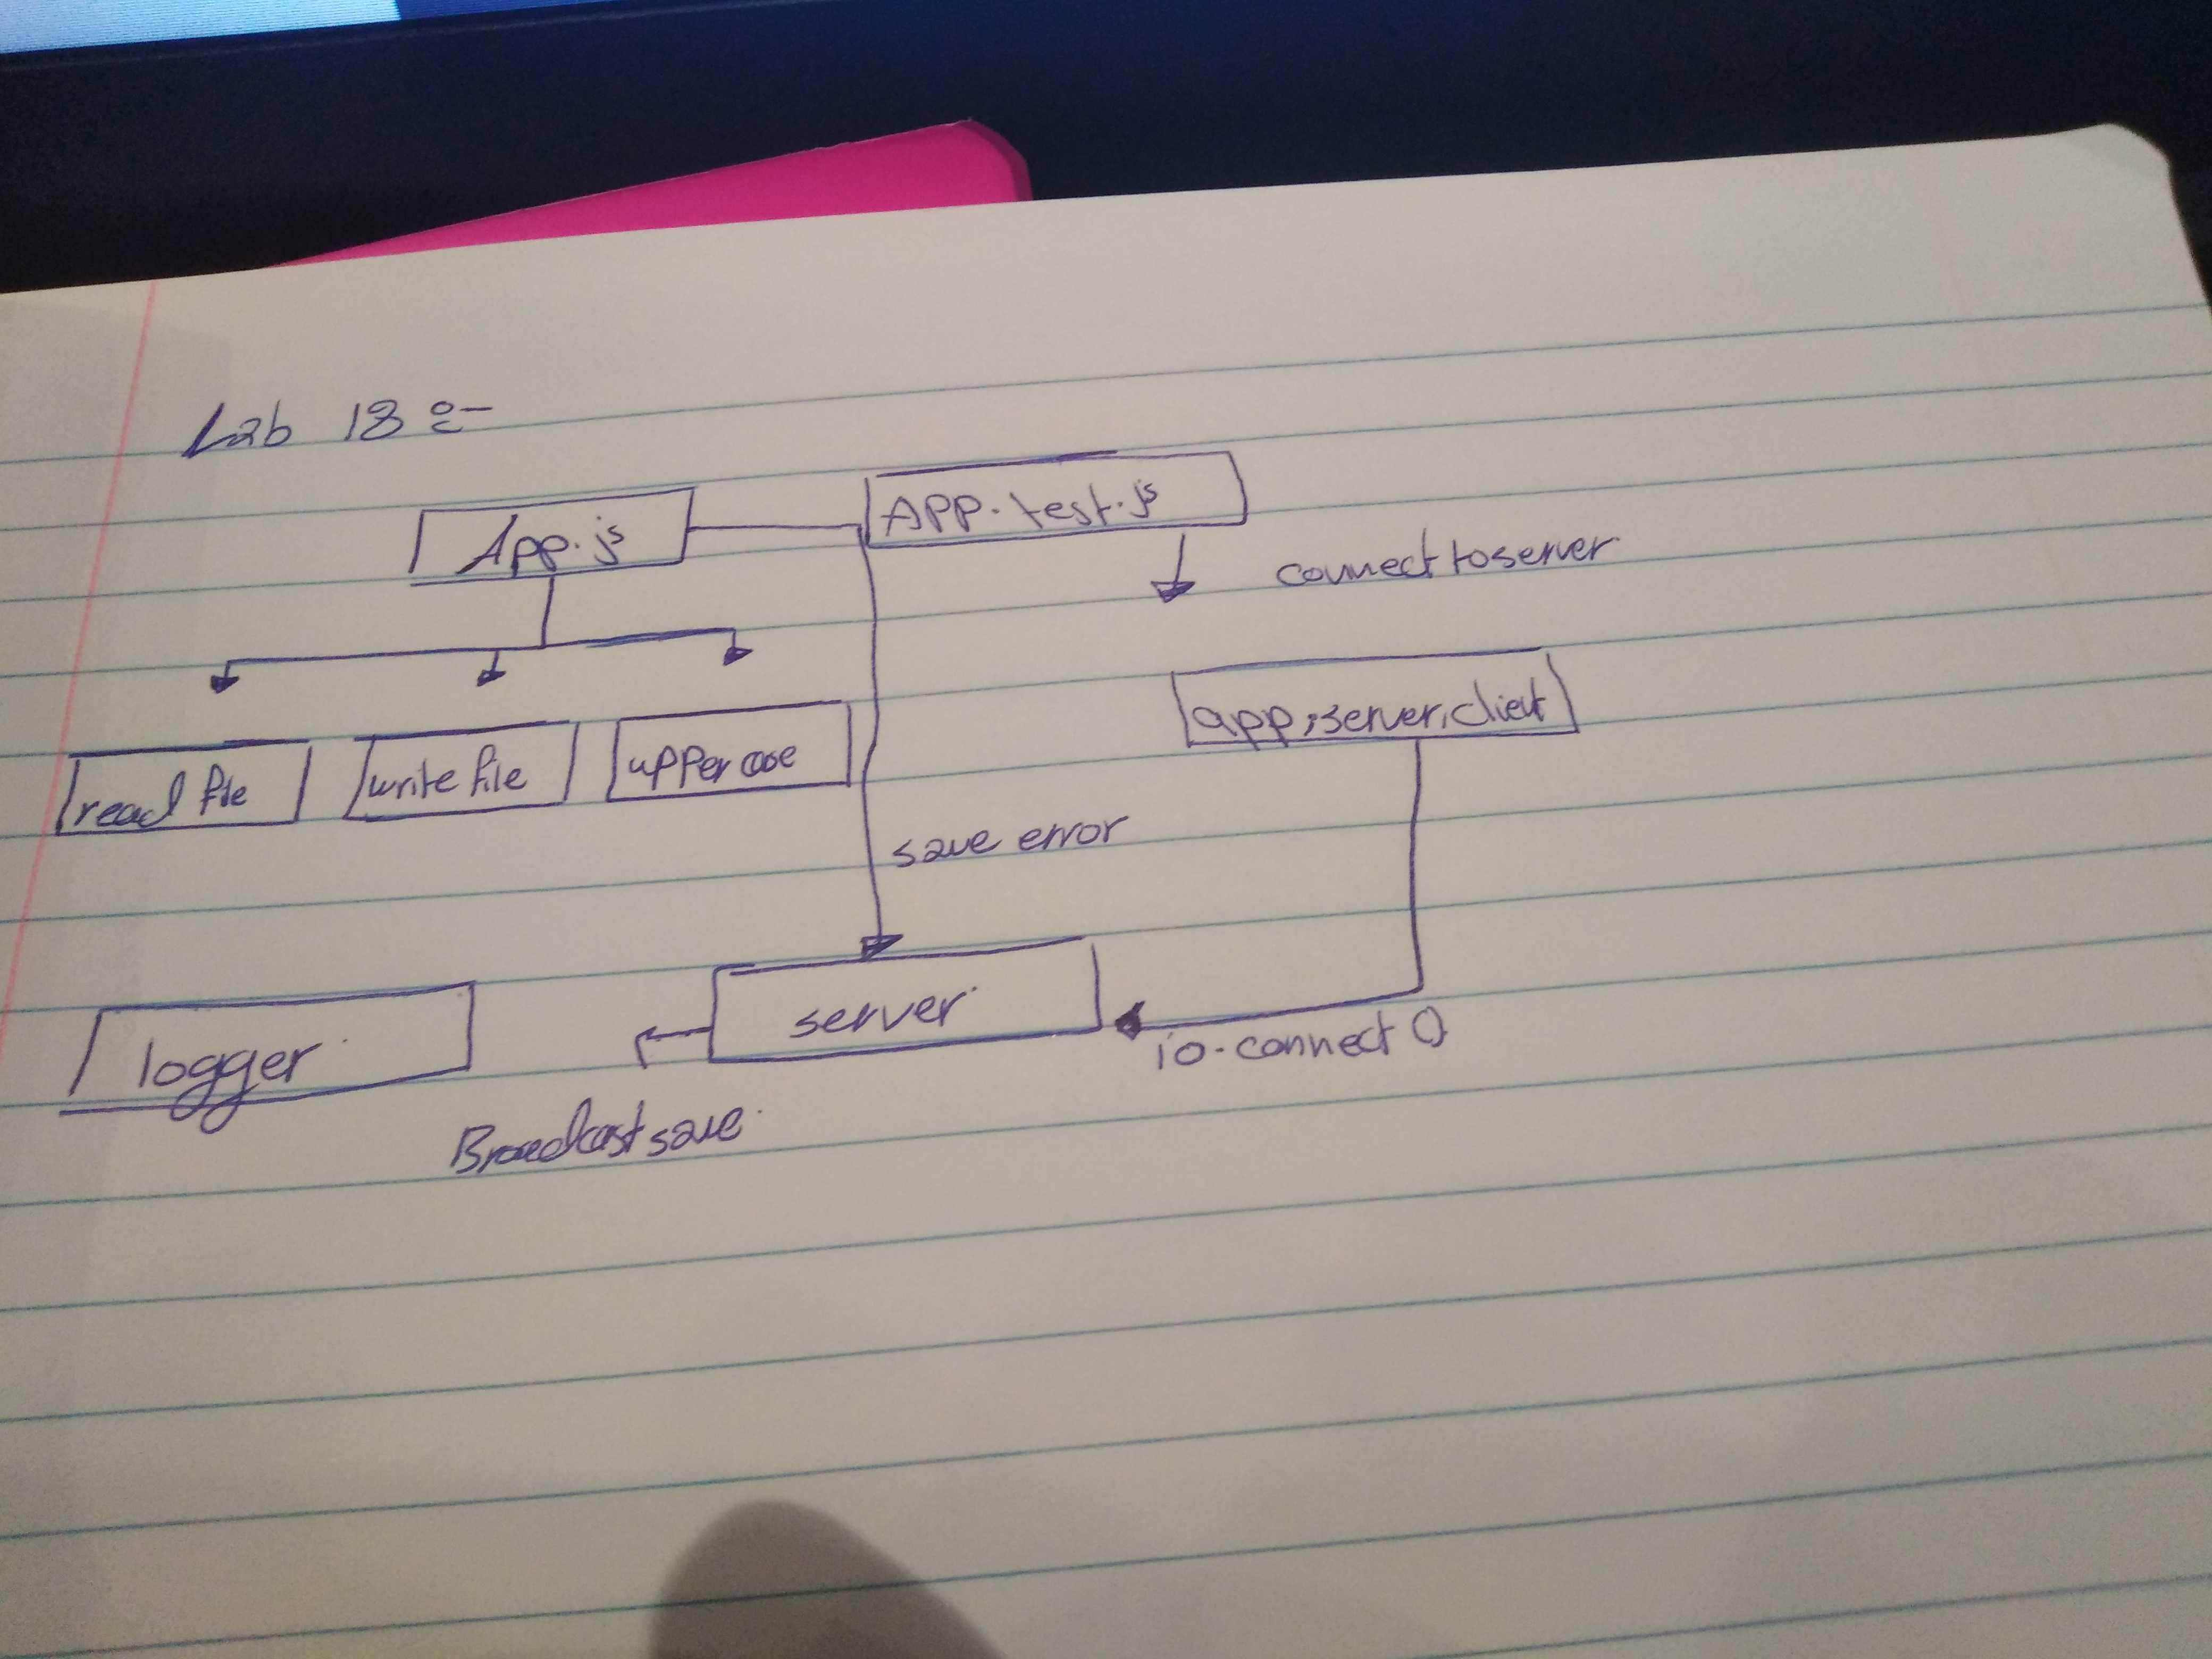 Lab 18 :-
App.js
APP.test.js
connect to server
read file
write file
upper case
app,server,client
save error
server
logger
io.connect ()
Broadcast save